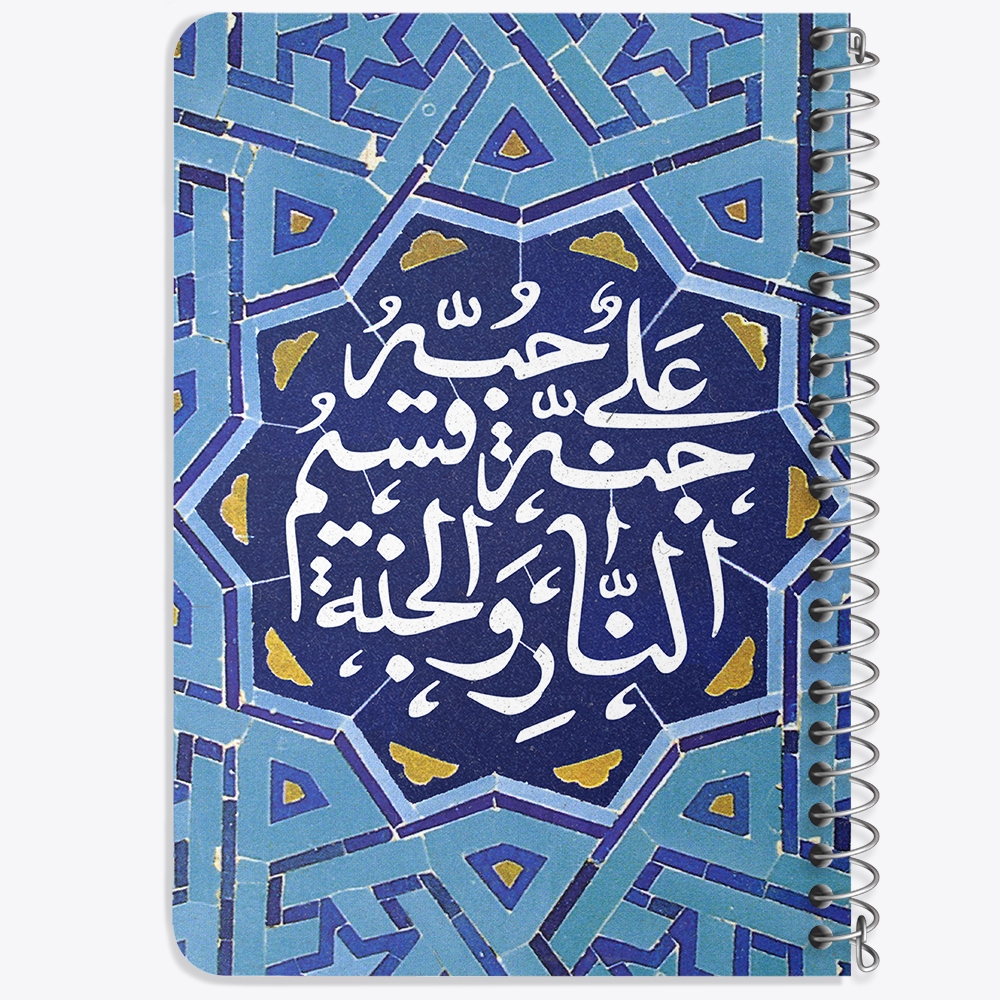 عَلیٌّ حُبُّهُ
جُنَّة قَسیمُ
النَّارِ وَالجَنَّة